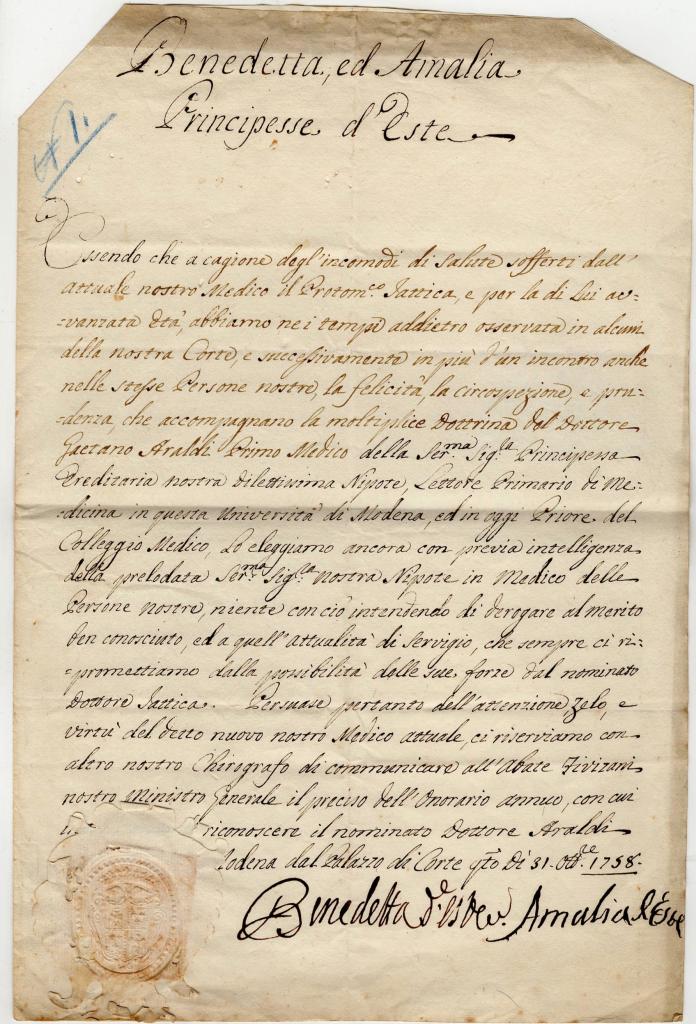 Benedetta, ed Amalia
Principesse d'Este
N 1.
Essendo che a cagione degl'incomodi di salute sofferti dall'
attuale nostro Medico il Protom.co Jattica, e per la di Lui av=
=vanzata Età, abbiamo ne i tempi addietro osservata in alcuni
della nostra Corte, e successivamente in più d'un incontro anche
nelle stesse Persone nostre, la felicità, la circospezione, e pru=
=denza, che accompagnano la moltiplice Dottrina del Dottore
Gaetano Araldi Primo Medico della Ser.ma Sig.ra Principessa
Ereditaria nostra dilettissima Nipote, Lettore Primario di Me=
=dicina in questa Università di Modena, ed in oggi Priore del
Colleggio Medico, Lo eleggiamo ancora con previa intelligenza
della prelodata Ser.ma Sig.ra nostra Nipote in Medico delle
Persone nostre, niente con ciò intendendo di derogare al merito
ben conosciuto, ed a quell'attualità di Servigio, che sempre ci ri=
=promettiamo dalla possibilità delle sue forze dal nominato
Dottore Jattica. Persuase pertanto dell'attenzione, zelo, e
virtù del detto nuovo nostro Medico attuale, ci riserviamo con
altro nostro Chirografo di communicare all'Abate Fivizani
nostro Ministro Generale il preciso dell'Onorario annuo, con cui
riconoscere il nominato Dottore Araldi
odena dal Palazzo di Corte q.to Dì 31. Ott.re 1758.
Benedetta d'Este. Amalia d'Este